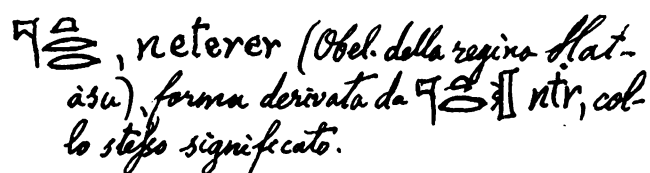 𓊹𓏏𓂋𓂋, neterer (Obel. della regina Hat-
àsu), forma derivata da 𓊹𓏏𓂋 ntr, col-
lo stesso significato.